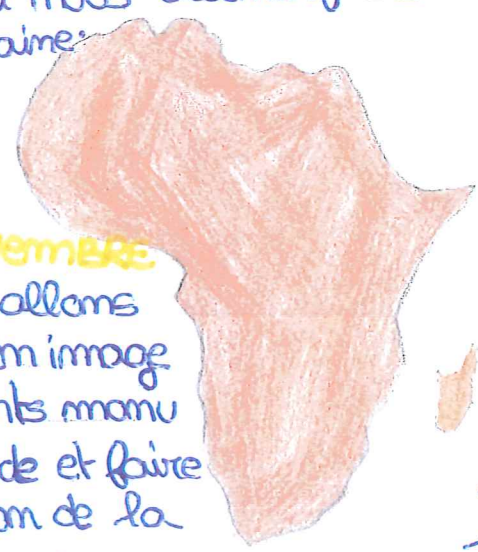 aine.
VEMBRE
allons
en image
nts manu
de et faire
on de la